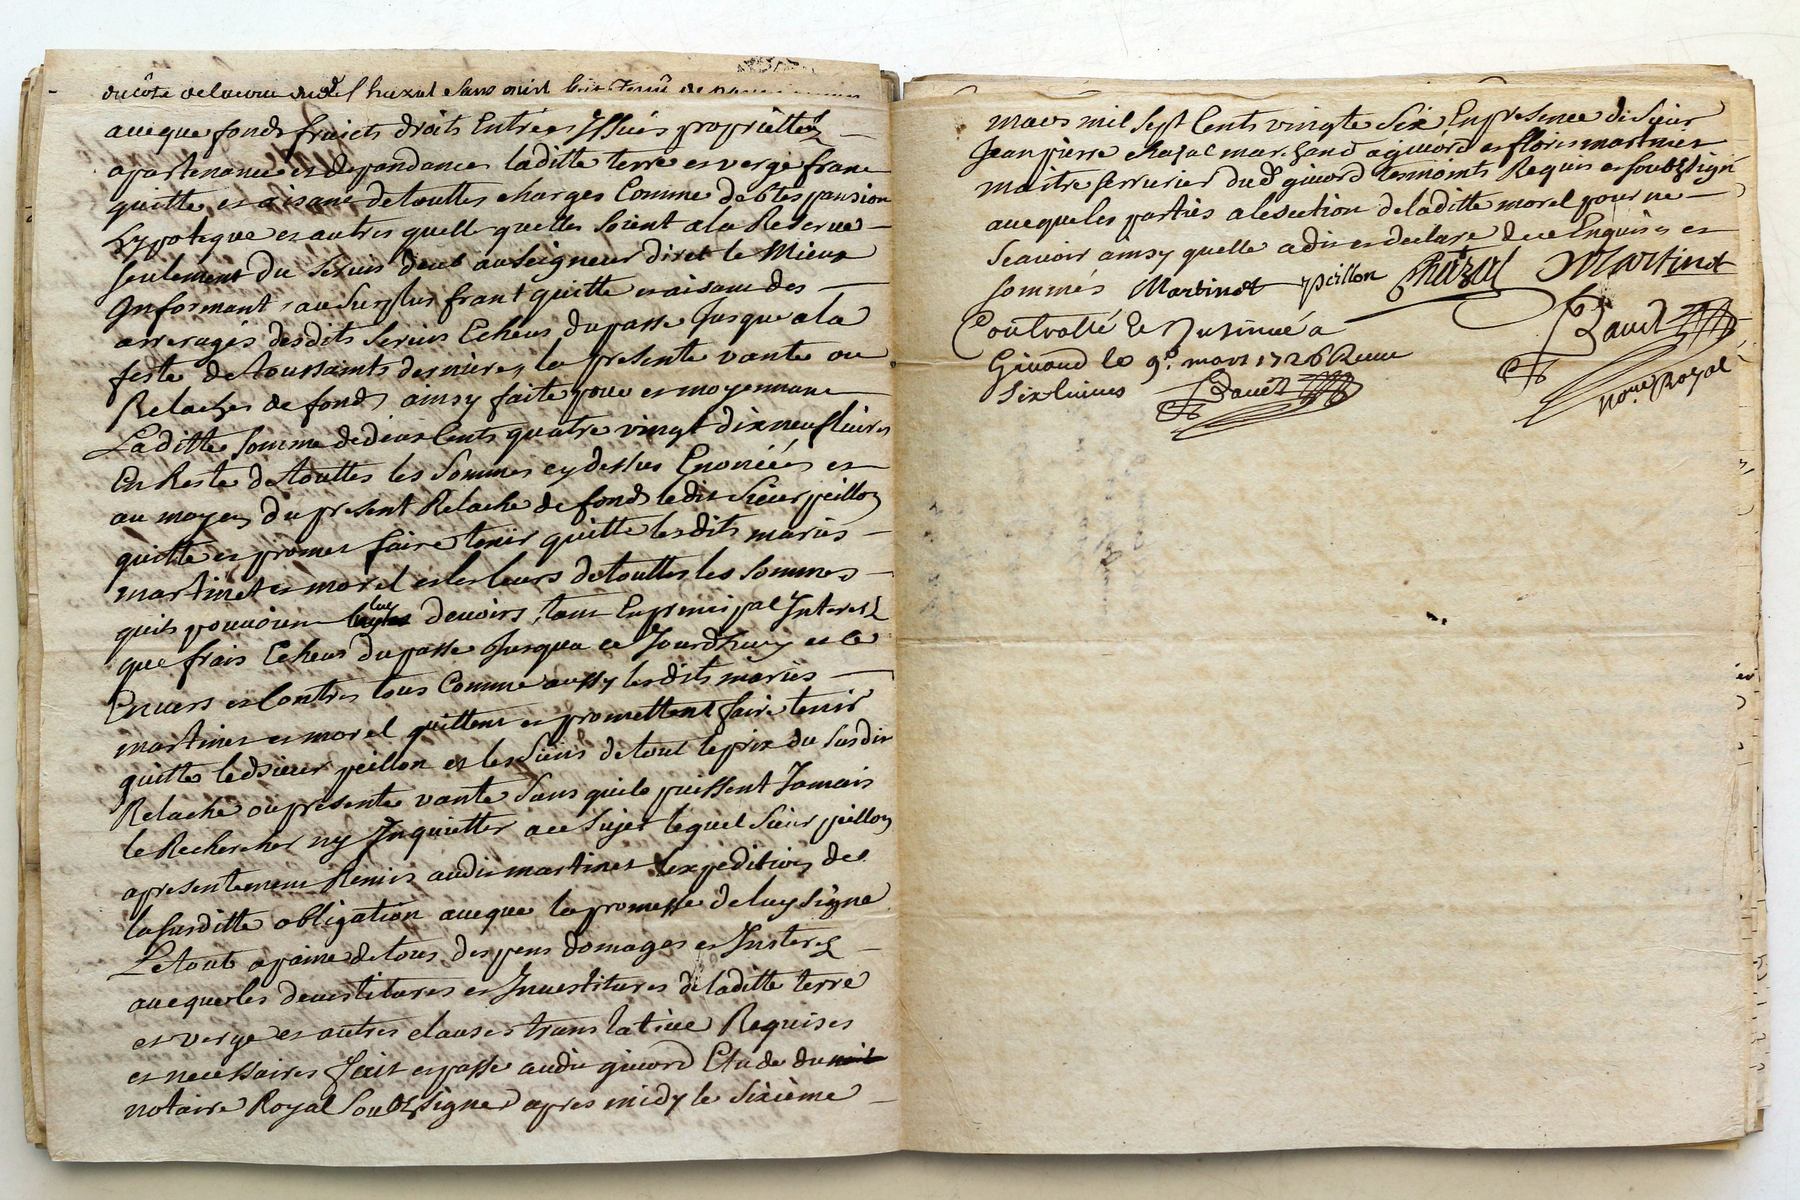 du côté de la cour dud. Chazal sans
aueque fonds fruicts droits Entrées Issuës proprietés
apartenances et dependances laditte terre et verge franc
quitte et aisans de touttes charges Comme debtes pansion
hypoteque et autres quelle quelles soient a la Reserue
seulement du seruis deub au seigneur diret le Mieux
Informant, au surplus frant quitte et aisans des
arrerages desdits seruis Echeus du passe Jusque a la
feste de toussaints derniere, la presente vante ou
Relaches de fonds ainsy faite pour et moyennant
Laditte somme de deux Cents quatre vingt dix neuf liures
En Reste de touttes les sommes cy dessus Enoncées et
au moyen du present Relache de fonds ledit sieur peillon
quitte et promet faire tenir quitte lesdits mariés
martinet et morel et les leurs de touttes les sommes
quils pouuoient luy deuoirs, tant En principal Interest
que frais Echeus du passe Jusqua ce Jourdhuy et ce
Enuers et Contres tous Comme aussy lesdits mariés
martinet et morel quittent et promettent faire tenir
quitte ledsieur peillon et les siens de tout le prix du susdit
Relache ou presente vante sans quils puissent Jamais
le Rechercher ny Inquietter a ce sujet lequel sieur peillon
a presentement Remis audit martinet lexpedition de
la susditte obligation aueque la promesse de luy signe
Le tout a paine de tous despens domages et Insterest
auequeles deuestitures et Inuestitures de laditte terre
et verge et autres clauses translatiue Requises
et necessaires fait et passe audit giuord Etude du
notaire Royal soubzsigner apres midy le sixième
mars mil sept Cents vingte six En presence de sieur
Jean pierre chazal marchand a giuord et floris martinet
maitre serrurier dud. giuord tesmoints Requis et soubzsigné
auequeles partiés a lexsection de laditte morel pour ne
scauoir ainsy quelle a dit et declare de ce Enquise et
sommés Martinet peillon Chazal Martinet
Controllé et Insinué a
Giuord le 9e. mars 1726 Receu
six liures
not.re Royal